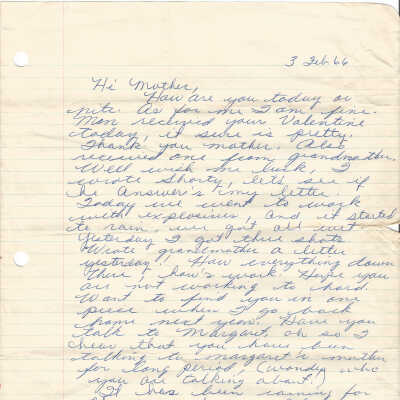 3 Feb 66
Hi Mother,
How are you today or
nite. As for me I am fine.
Mom received your Valentine
today, it sure is pretty.
Thank you mother. Also
received one from grandmother.
Well wish me luck, I
wrote Shorty, let's see if
he Answer's my letter.
Today we went to work
with explosives, and it started
to rain, we got all wet.
Yesterday I got three shots.
Wrote grandmother a letter
yesterday. How everything down
there? how's work. Hope you
are not working to hard.
Want to find you in one
piece when I go back
home next year. Have you
talk to Margaret oh so I
hear that you have been
talking to margaret's mother
for long period. (wonder who
you are talking about.)
It has been raining for